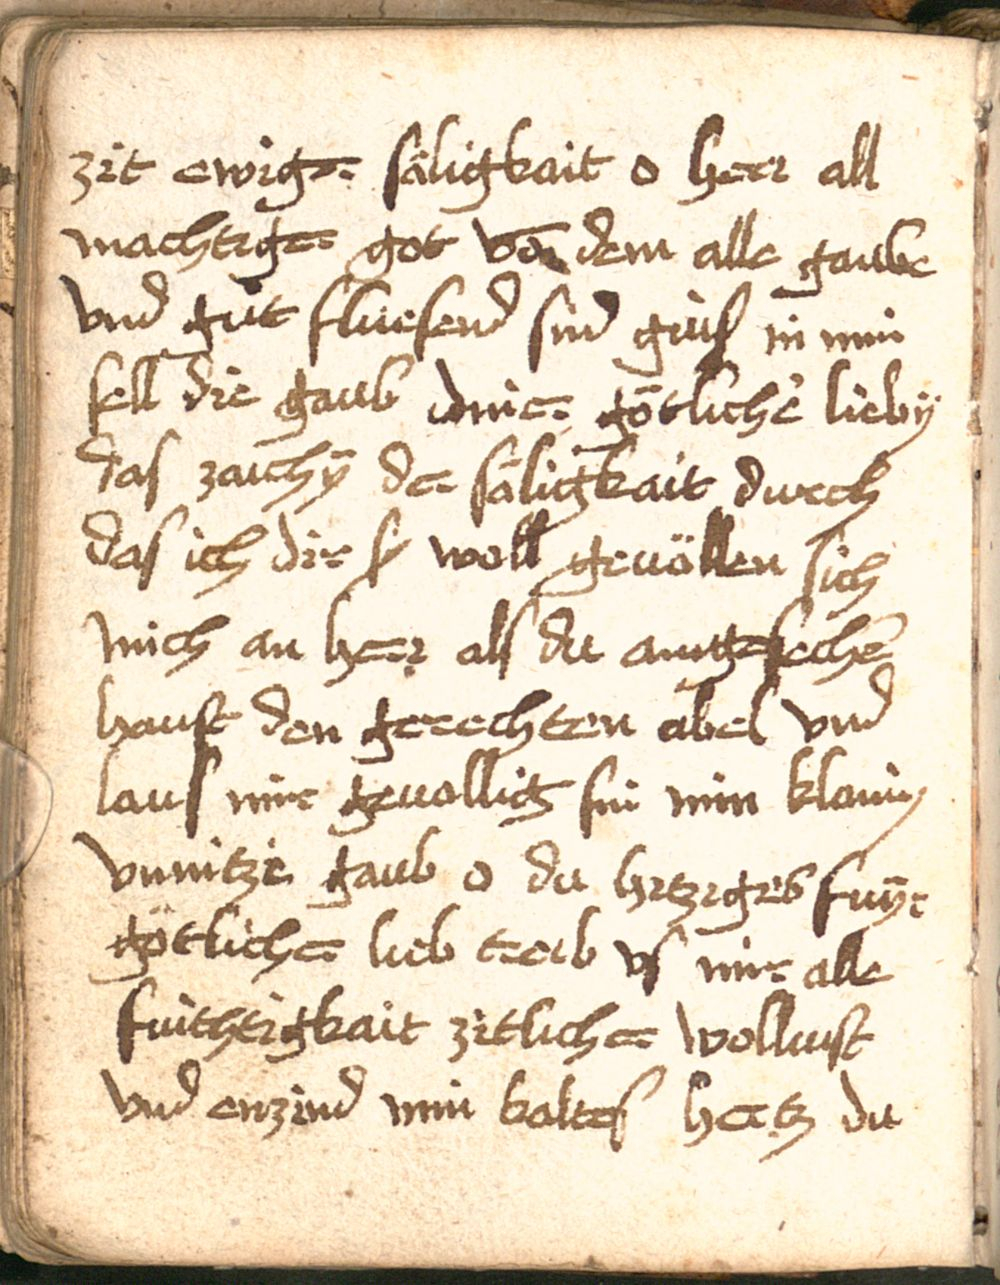 zit ewiger säligkait o herr all
mächtiger got von dem alle gaube
vnd gůt fliesend sind güß in min
sell die gaub diner götlicher lieby
das zaichÿ der säligkait durch
das ich dir woll geuöllen sich
mich an herr als du angesechen
haust den gerechten abel vnd
lauß mir geuallig sin min klainy
vnnitze gaub o du hitziges füyr
götlicher lieb treib vß mir alle
füichtigkait zitlicher wollust
vnd enzind min kaltes hertz du